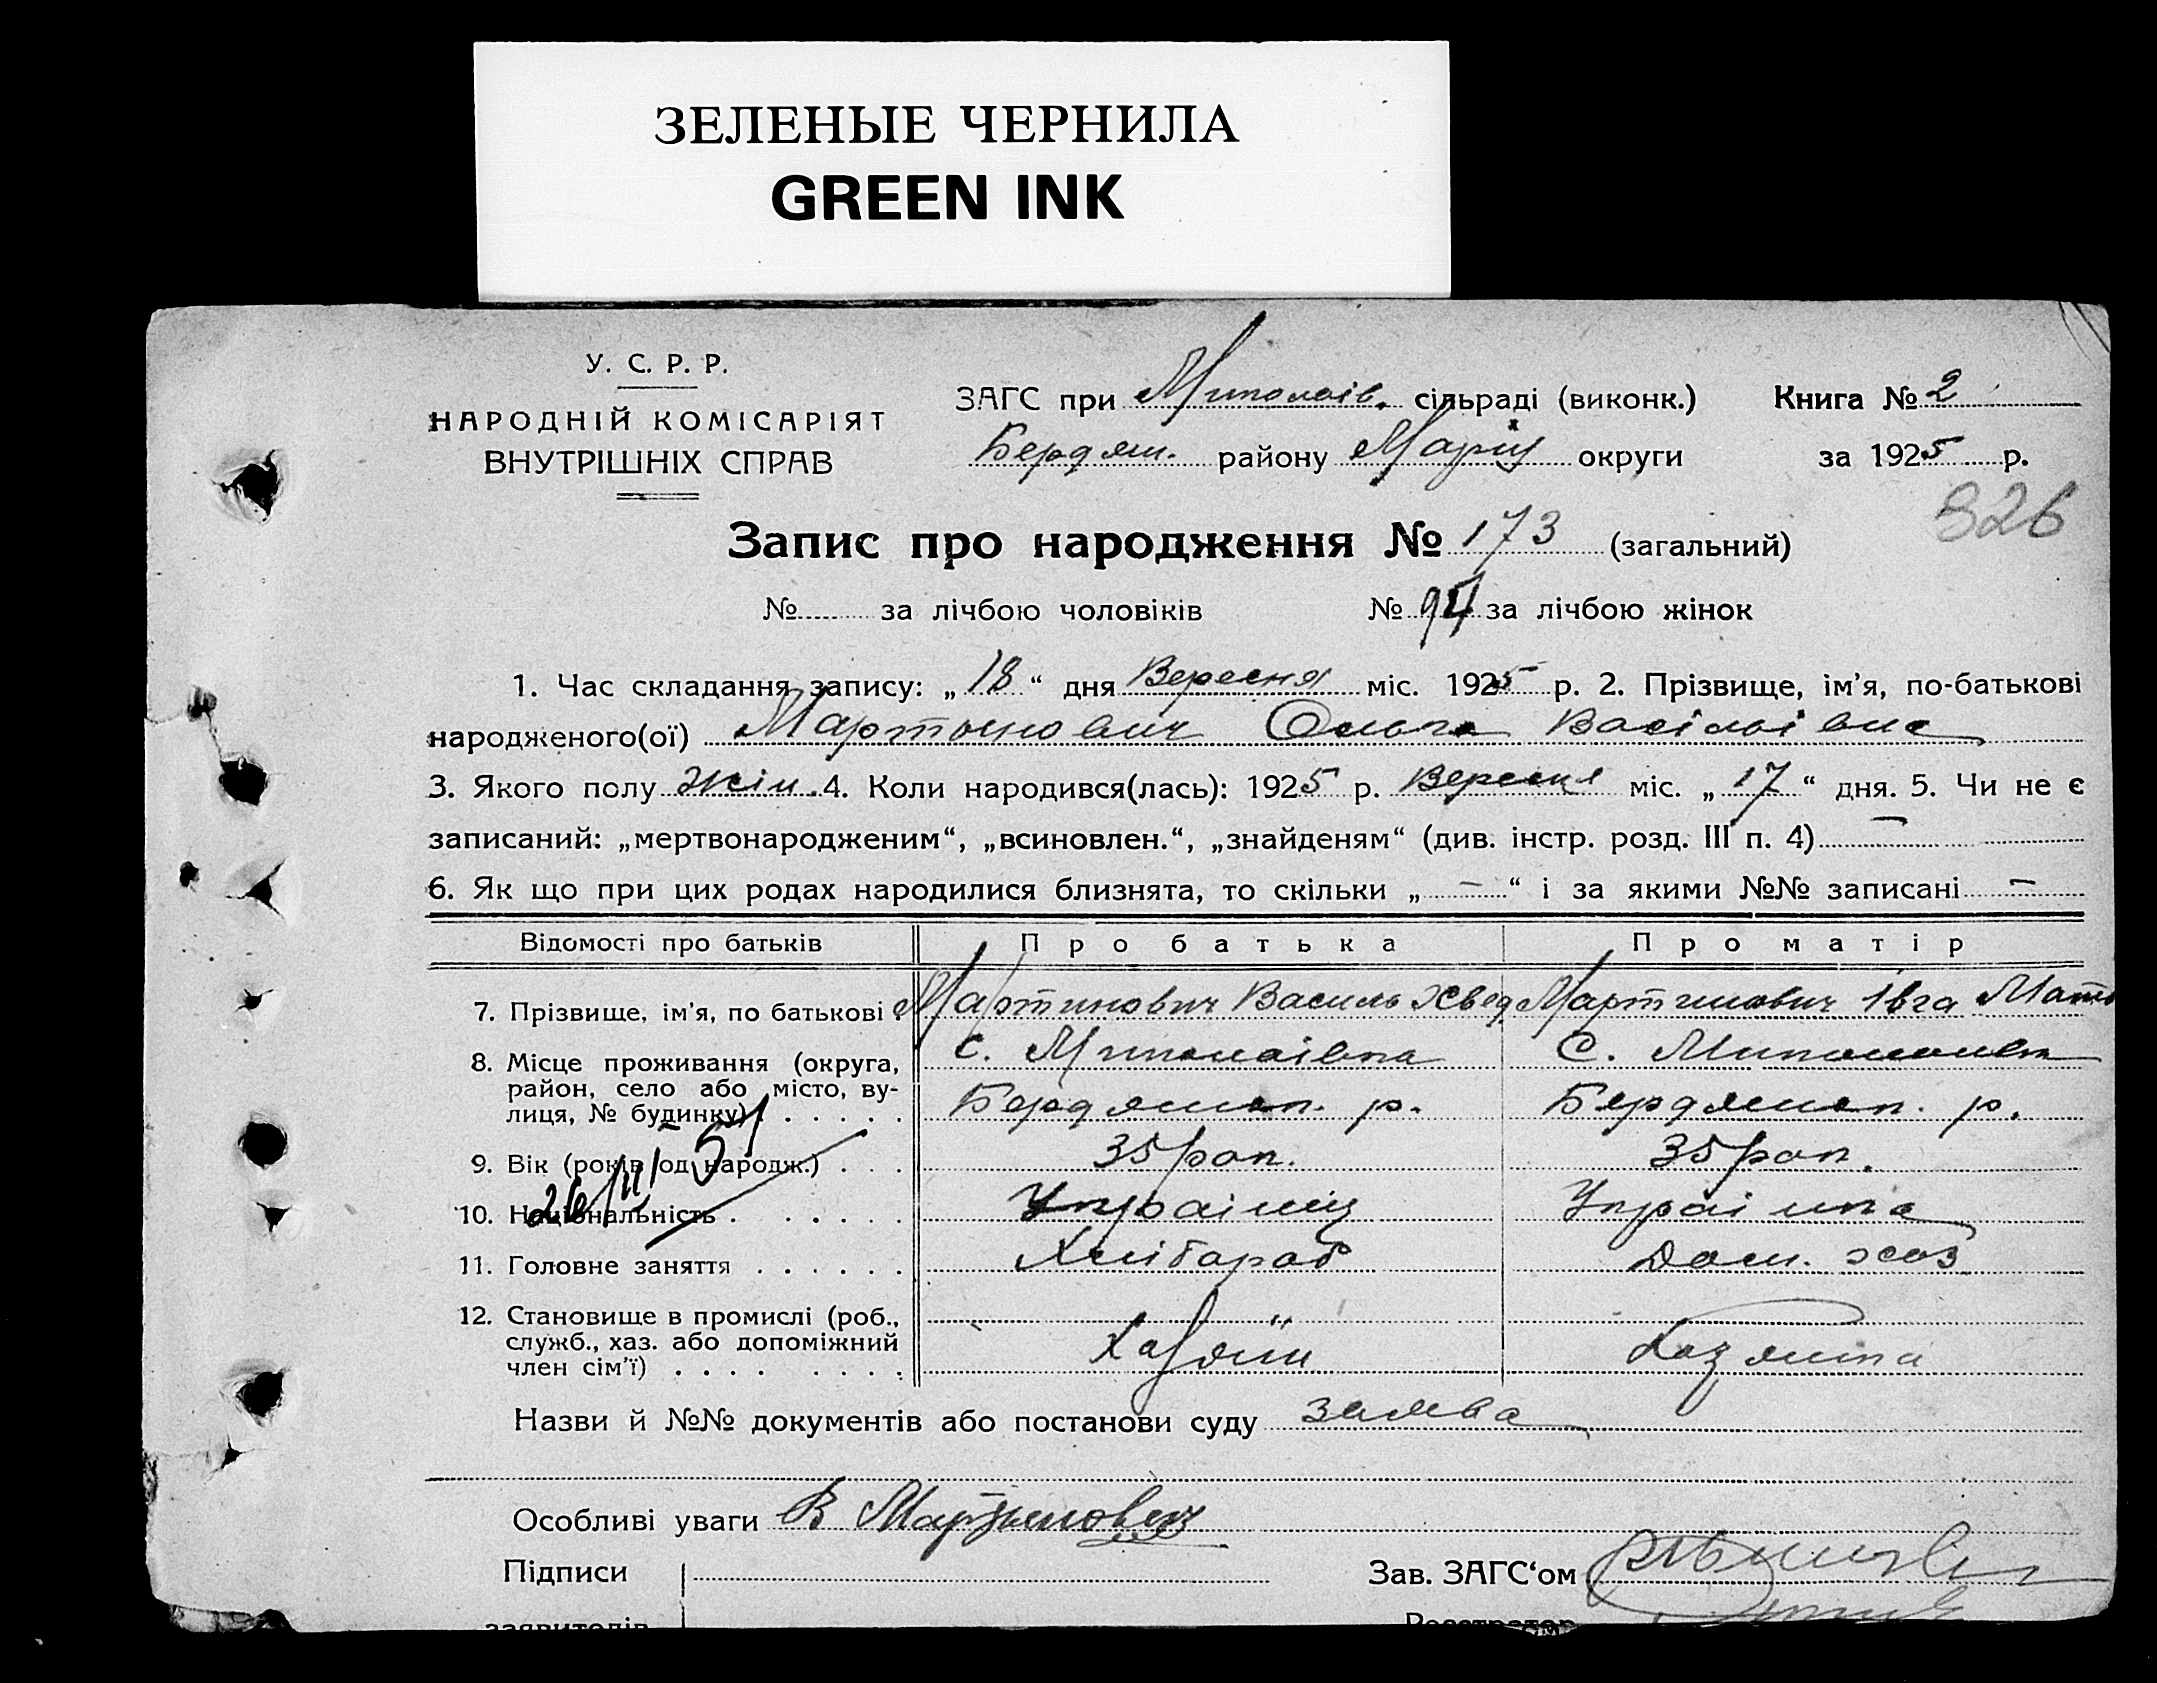 ЗЕЛЕНЫЕ ЧЕРНИЛА
GREEN INK
У. С. Р. Р.
НАРОДНІЙ КОМІСАРІЯТ
ВНУТРІШНІХ СПРАВ
ЗАГС при Миколаів. сільраді (виконк.) Книга № 2
Бердян. району Маріу округи за 1925 р.
326
Запис про народження № 173 (загальний)
№ за лічбою чоловіків № 94 за лічбою жінок
1. Час складання запису: „18“ дня Вересня міс. 1925 р. 2. Прізвище, ім'я, по-батькові
народженого(ої) Мартынович Ольга Васільівна
3. Якого полу жін. 4. Коли народився(лась): 1925 р. Вересня міс. „17“ дня. 5. Чи не є
записаний: „мертвонародженим“, „всиновлен.“, „знайденям“ (див. інстр. розд. III п. 4) —
6. Як що при цих родах народилися близнята, то скільки „ — “ і за якими №№ записані —
Відомості про батьків Про батька Про матір
7. Прізвище, ім'я, по батькові Мартинович Василь Хвед Мартинович Івга Матв
8. Місце проживання (округа, с. Миколаівка С.
район, село або місто, ву-
лиця, № будинку) Бердянск. р. Бердянск. р.
9. Вік (років од народж.) 35 рок. 35 рок.
26/III-51
10. Національність Украінец Украінка
11. Головне заняття Хлібороб Дом. хоз
12. Становище в промислі (роб.,
служб., хаз. або допоміжний
член сім'ї) Хазяїн Хазяика
Назви й №№ документів або постанови суду заява
Особливі уваги В Мартынович
Підписи Зав. ЗАГС‘ом
заявителів Реєстратор